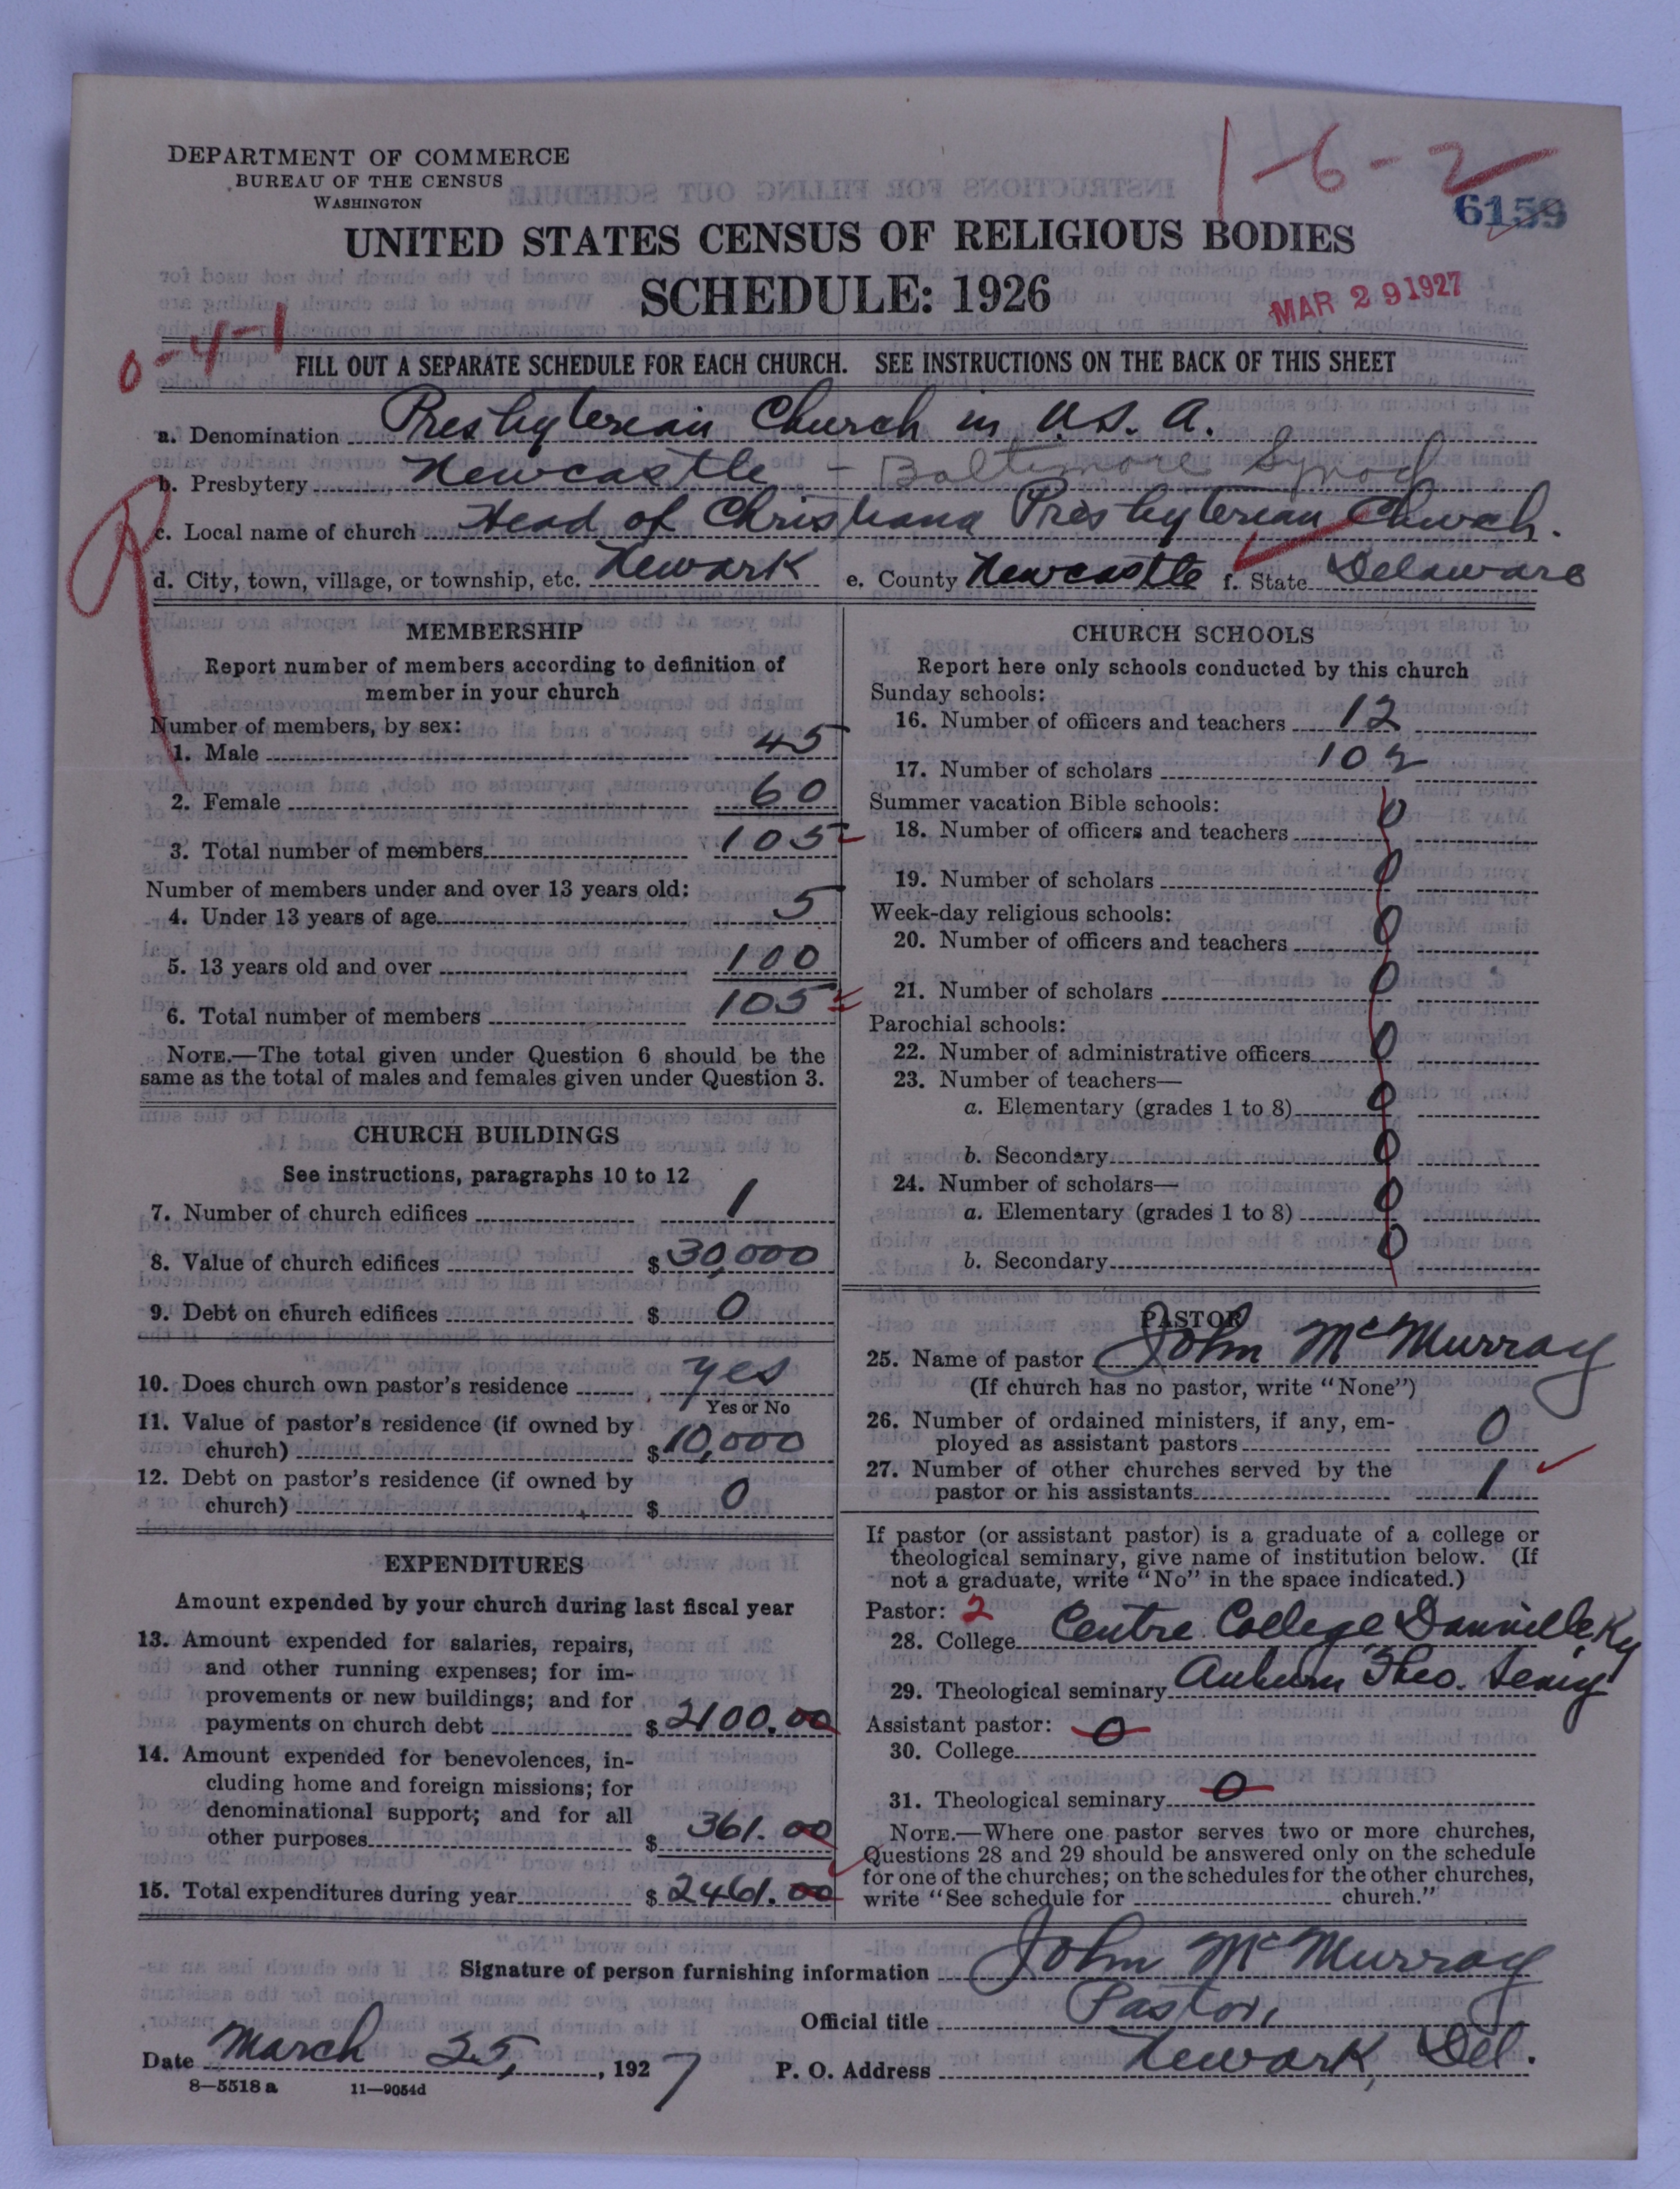 DEPARTMENT OF COMMERCE
BUREAU OF THE CENSUS
WASHINGTON
1-6-2
6159
UNITED STATES CENSUS OF RELIGIOUS BODIES
SCHEDULE: 1926
MAR 29 1927
0-4-1
FILL OUT A SEPARATE SCHEDULE FOR EACH CHURCH. SEE INSTRUCTIONS ON THE BACK OF THIS SHEET
a. Denomination Presbyterian Church in U.S.A.
b. Presbytery Newcastle - Baltimore Synod
c. Local name of church Head of Christiana Presbyterian Church.
d. City, town, village, or township, etc. Newark e. County Newcastle f. State Delaware
MEMBERSHIP
Report number of members according to definition of
member in your church
Number of members, by sex:
1. Male 45
2. Female 60
3. Total number of members 105
Number of members under and over 13 years old:
4. Under 13 years of age 5
5. 13 years old and over 100
6. Total number of members 105
NOTE.—The total given under Question 6 should be the
same as the total of males and females given under Question 3.
CHURCH BUILDINGS
See instructions, paragraphs 10 to 12
7. Number of church edifices 1
8. Value of church edifices $30,000
9. Debt on church edifices $ 0
10. Does church own pastor's residence yes
Yes or No
11. Value of pastor's residence (if owned by
church) $10,000
12. Debt on pastor's residence (if owned by
church) $ 0
EXPENDITURES
Amount expended by your church during last fiscal year
13. Amount expended for salaries, repairs,
and other running expenses; for im-
provements or new buildings; and for
payments on church debt $2100.00
14. Amount expended for benevolences, in-
cluding home and foreign missions; for
denominational support; and for all
other purposes $ 361.00
15. Total expenditures during year $2461.00
CHURCH SCHOOLS
Report here only schools conducted by this church
Sunday schools:
16. Number of officers and teachers 12
17. Number of scholars 102
Summer vacation Bible schools:
18. Number of officers and teachers 0
19. Number of scholars 0
Week-day religious schools:
20. Number of officers and teachers 0
21. Number of scholars 0
Parochial schools:
22. Number of administrative officers 0
23. Number of teachers—
a. Elementary (grades 1 to 8) 0
b. Secondary 0
24. Number of scholars—
a. Elementary (grades 1 to 8) 0
b. Secondary 0
PASTOR
25. Name of pastor John McMurray
(If church has no pastor, write "None")
26. Number of ordained ministers, if any, em-
ployed as assistant pastors 0
27. Number of other churches served by the
pastor or his assistants 1
If pastor (or assistant pastor) is a graduate of a college or
theological seminary, give name of institution below. (If
not a graduate, write "No" in the space indicated.)
Pastor: 2
28. College Centre College Danville, Ky
29. Theological seminary Auburn Theo. Semy
Assistant pastor: 0
30. College
31. Theological seminary 0
NOTE.—Where one pastor serves two or more churches,
Questions 28 and 29 should be answered only on the schedule
for one of the churches; on the schedules for the other churches,
write "See schedule for church."
Signature of person furnishing information John McMurray
Official title Pastor,
Date March 25, 1927 P. O. Address Newark, Del.
8—5518 a 11—9054d